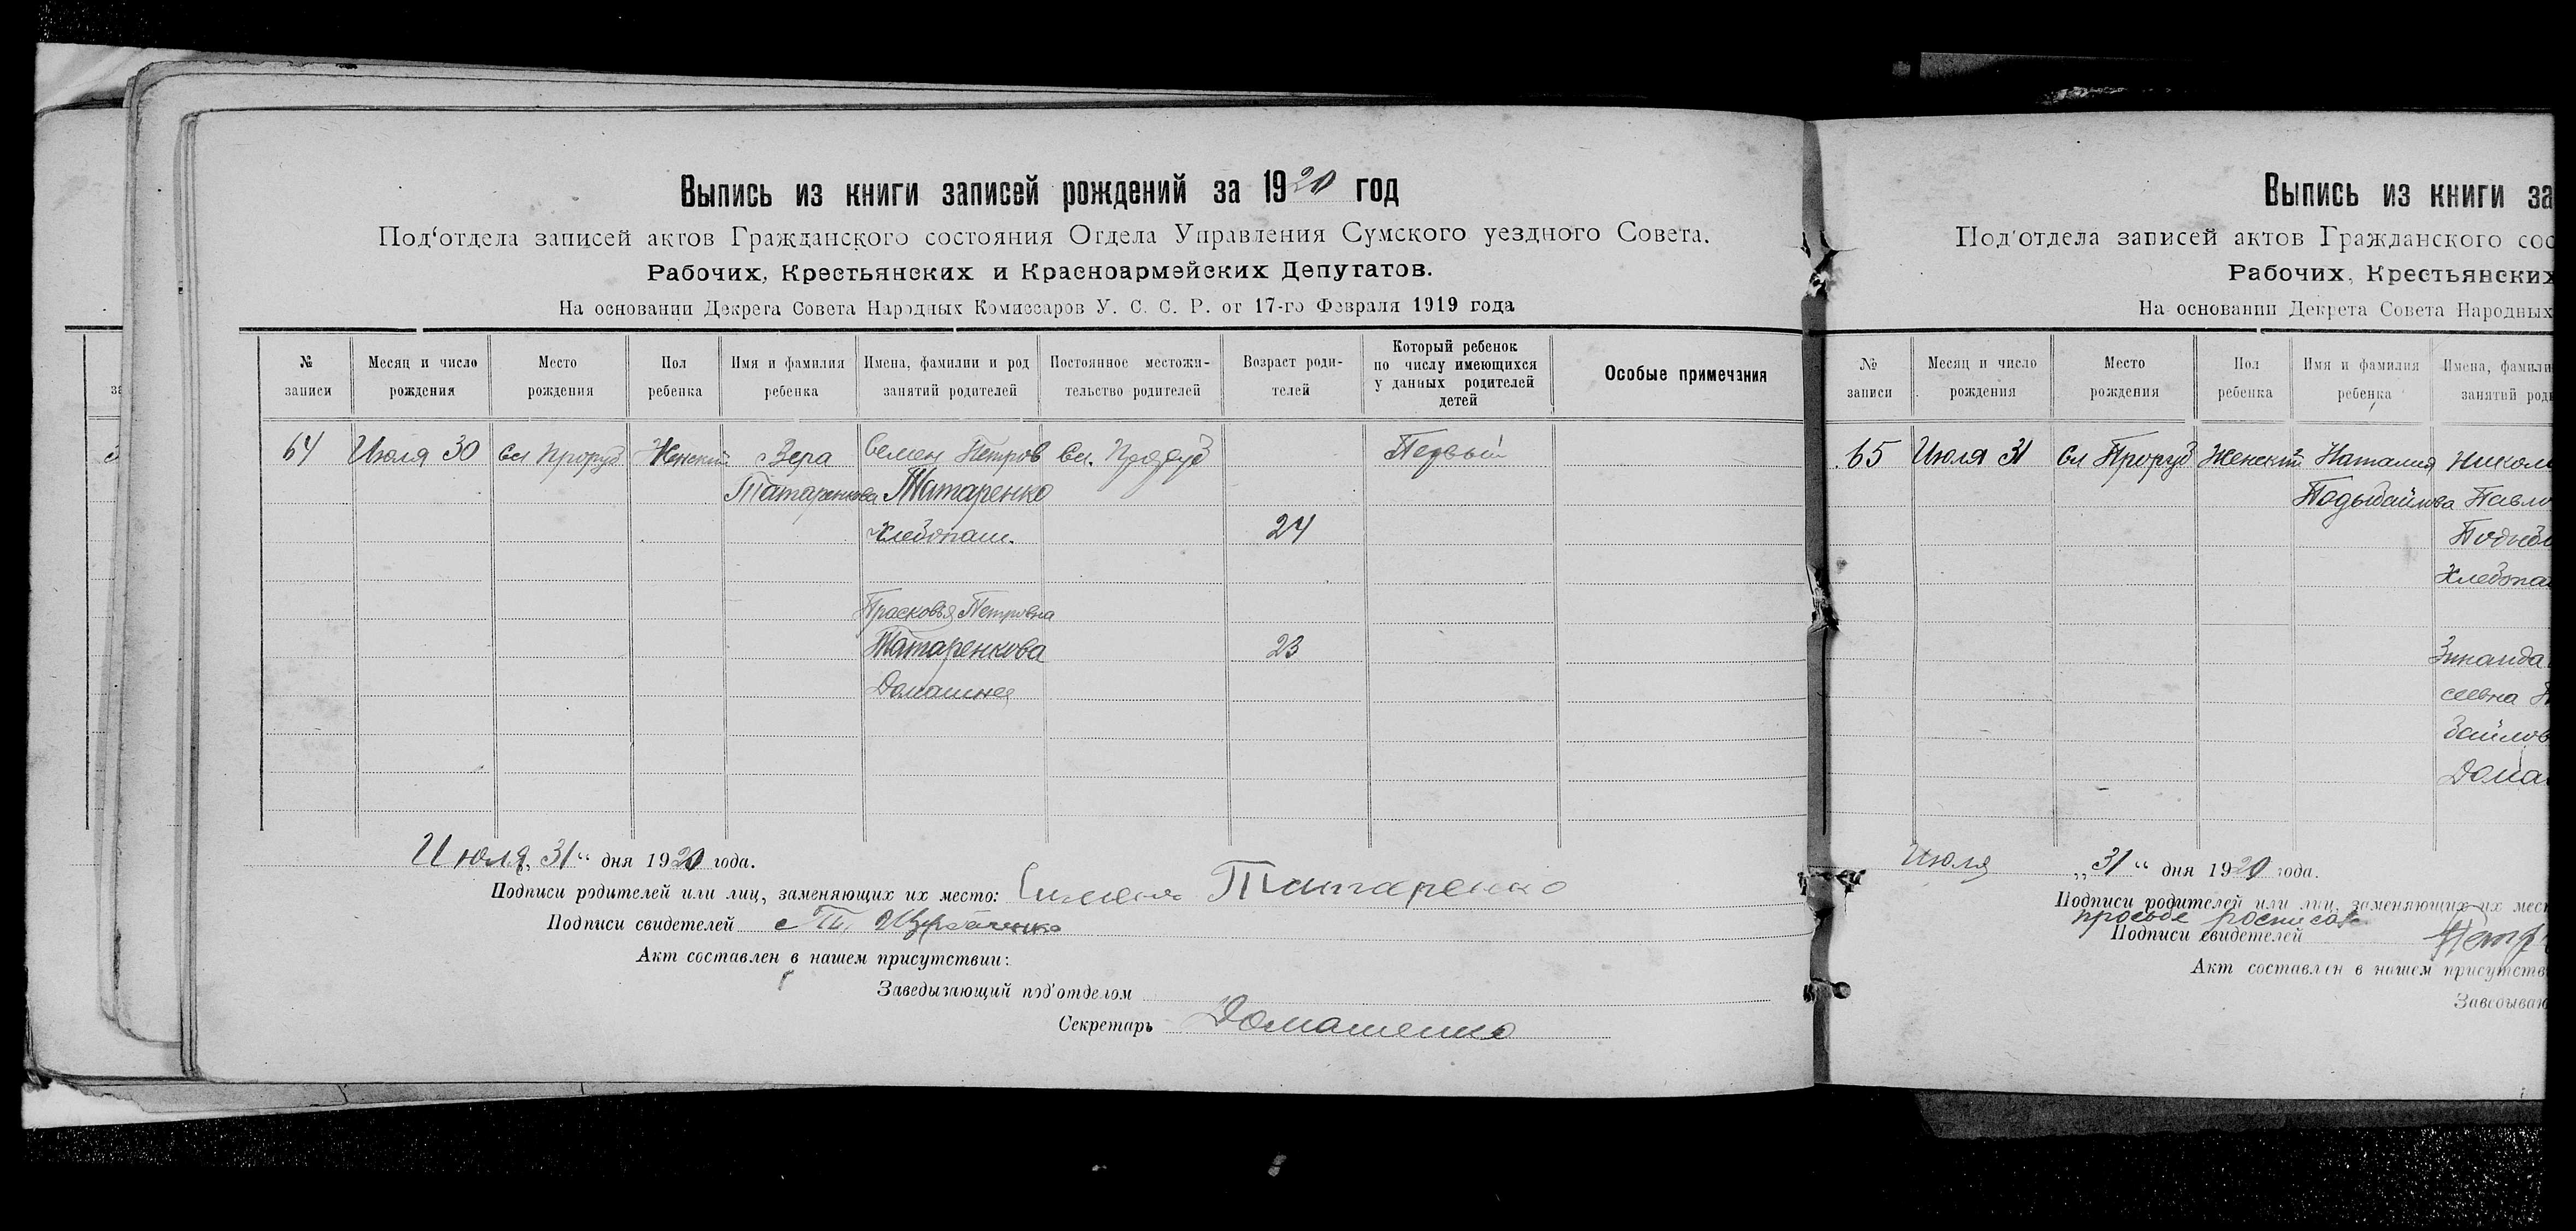 Выпись из книги записей рождений за 1920 год
Под‘отдела записей актов Гражданского состояния Отдела Управления Сумского уездного Совета.
Рабочих, Крестьянских и Красноармейских Депутатов.
На основании Декрета Совета Народных Комиссаров У. С. С. Р. от 17-го Февраля 1919 года
№ записи
Месяц и число рождения
Место рождения
Пол ребенка
Имя и фамилия ребенка
Имена, фамилии и род занятий родителей
Постоянное местожи-
тельство родителей
Возраст роди-
телей
Который ребенок
по числу имеющихся
у данных родителей
детей
Особые примечания
64 Июля 30 Сл Проруб Женский Вера Семен Петров Сл. Проруб Первый
Татаренкова Татаренко
Хлебопаш. 24
Прасковья Петровна
Татаренкова 23
Домашняя
Июля „31“ дня 1920 года.
Подписи родителей или лиц, заменяющих их место: Татаренко
Подписи свидетелей
Акт составлен в нашем присутствии:
Заведызающий под‘отделом
Секретарь Домашенко
Выпись из книги за
Под‘отдела записей актов Гражданского сос
Рабочих, Крестьянских
На основании Декрета Совета Народных
№ записи
Месяц и число рождения
Место рождения
Пол ребенка
Имя и фамилия ребенка
Имена, фамили
занятий род
65 Июля 31 Сл Проруб Женский Наталия Никол
Павло
Хлебопа
Зинаида
сеевна
Дома
Июля „31“ дня 1920 года.
Подписи родителей или лиц, заменяющих их мест
просьбе росписался
Подписи свидетелей
Акт составлен в нашем присутстви
Заведываю